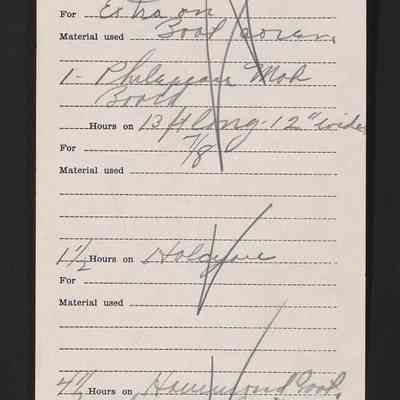 For Extra on
Material used Boat room.
1- Philippian Moh
Board
Hours on 13 ft long - 12" wide
For 7/8
Material used
1 1/2 Hours on
For
Material used
4 1/2 Hours on Hammond Book